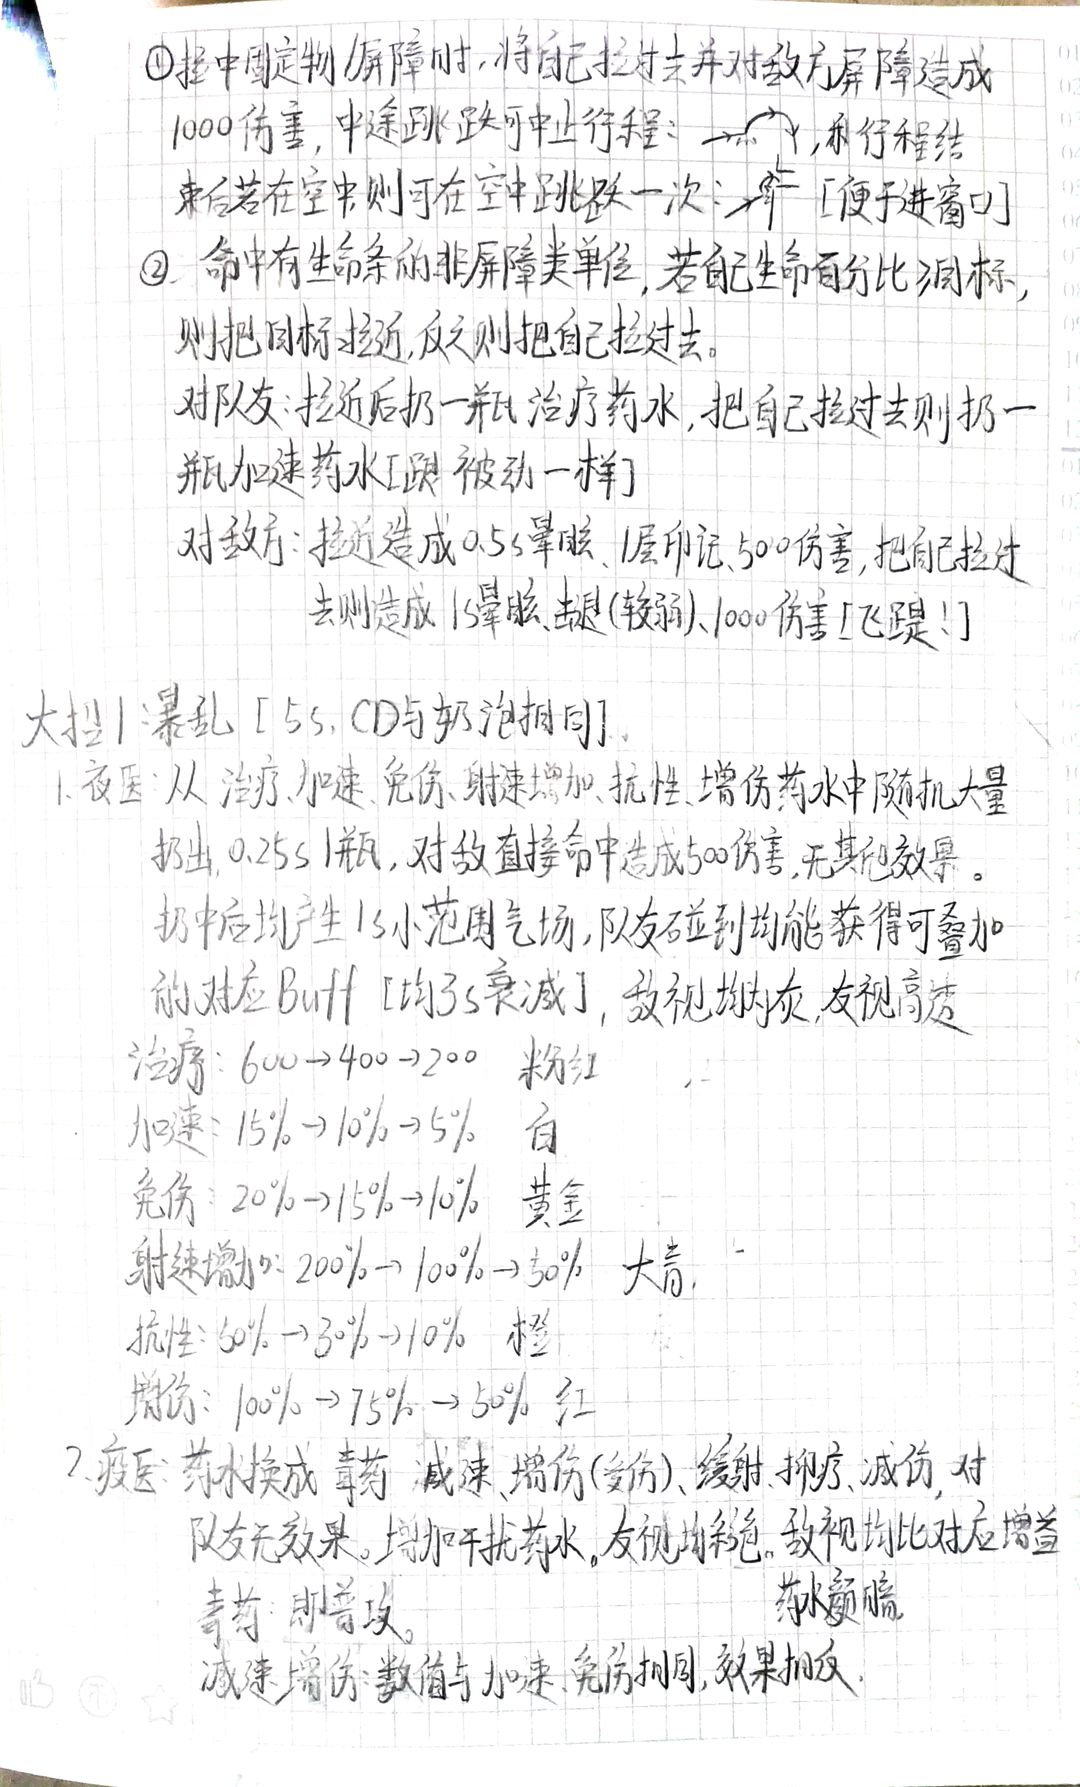 ①拉中固定物/屏障时,将自己拉过去并对敌方屏障造成
1000伤害,中途跳跃可中止行程:→,和行程结
束后若在空中,则可在空中跳跃一次:[便于进窗口]
② 命中有生命条的非屏障类单位,若自己生命百分比≥目标,
则把目标拉近,反之则把自己拉过去。
对队友:拉近后扔一瓶治疗药水,把自己拉过去则扔一
瓶加速药水[跟被动一样]
对敌方:拉近造成0.5s晕眩、1层印记、500伤害,把自己拉过
去则造成1s晕眩、击退(较弱)、1000伤害[飞踢!]
大招1:暴乱[5s,CD与奶泡相同].
1.夜医:从治疗、加速、免伤、射速增加、抗性、增伤药水中随机大量
扔出,0.25s1瓶,对敌直接命中造成500伤害,无其他效果。
扔中后均产生1s小范围气场,队友碰到均能获得可叠加
的对应Buff[均3s衰减],敌视均为灰,友视高透
治疗:600→400→200 粉红
加速:15%→10%→5% 白
免伤:20%→15%→10% 黄金
射速增加:200%→100%→50% 大青.
抗性:50%→30%→10% 橙
增伤:100%→75%→50% 红
2.疫医:药水换成毒药、减速、增伤(受伤)、缓射、抑疗、减伤,对
队友无效果。增加干扰药水。友视均彩色。敌视均比对应增益
药水颜暗.
毒药:即普攻。
减速、增伤:数值与加速、免伤相同,效果相反.